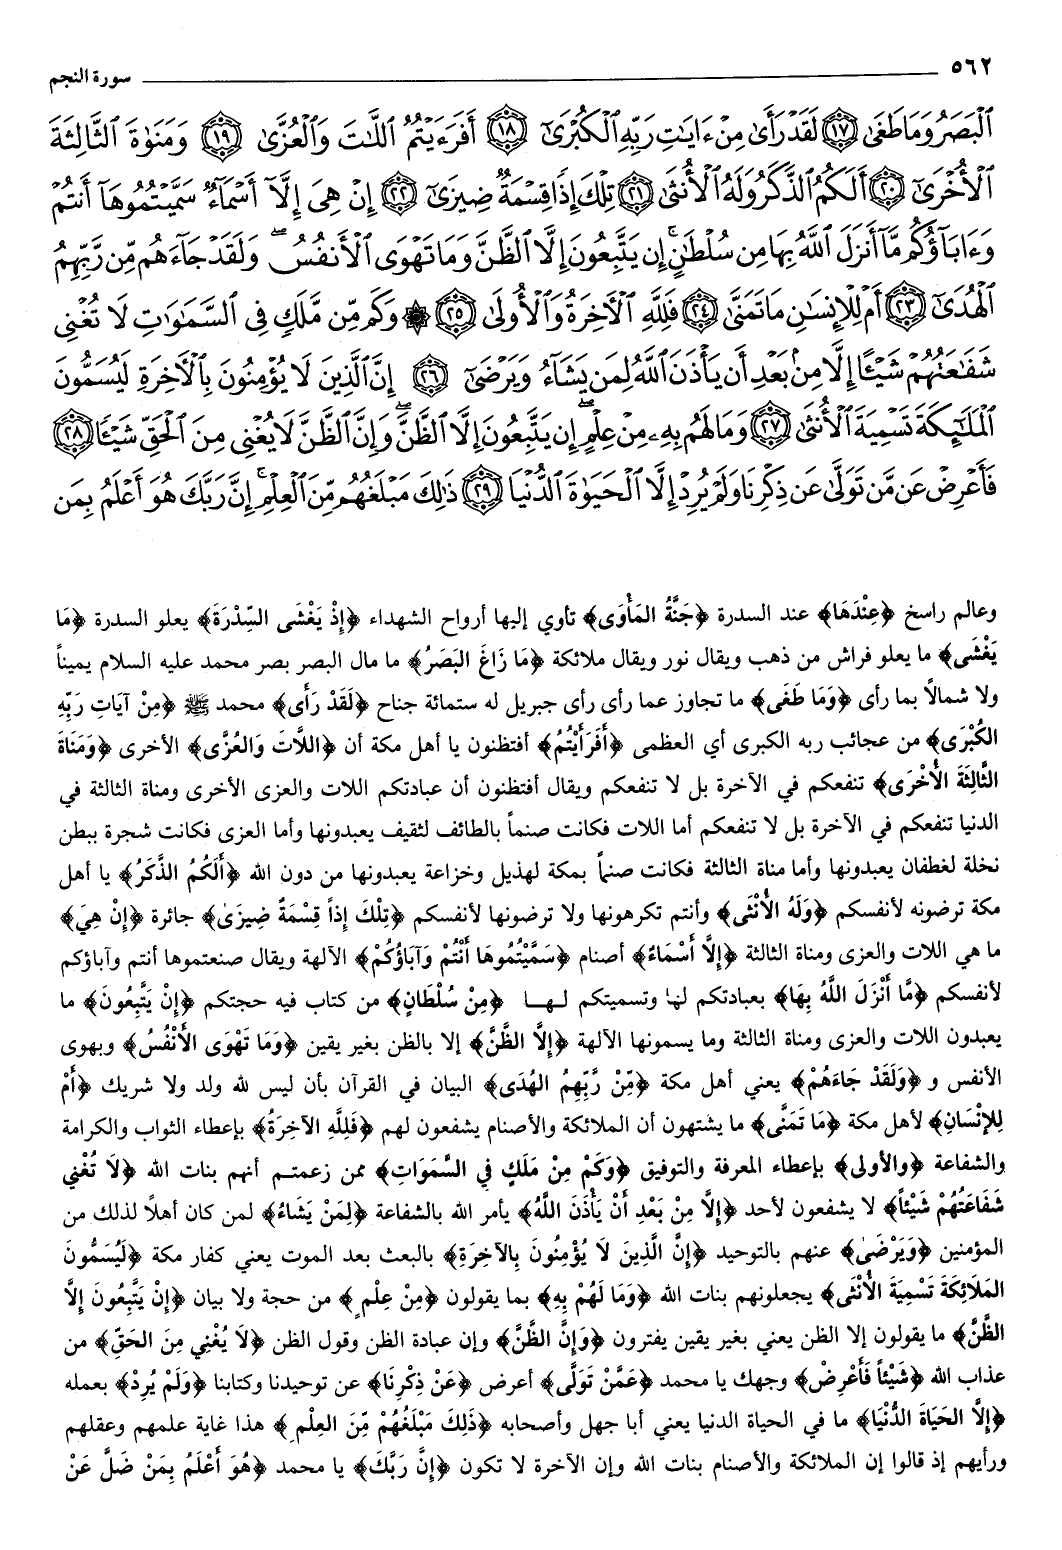 ٥٦٢ سورة النجم
ٱلْبَصَرُ وَمَا طَغَىٰ ١٧ لَقَدْ رَأَىٰ مِنْ ءَايَٰتِ رَبِّهِ ٱلْكُبْرَىٰٓ ١٨ أَفَرَءَيْتُمُ ٱللَّٰتَ وَٱلْعُزَّىٰ ١٩ وَمَنَوٰةَ ٱلثَّالِثَةَ
ٱلْأُخْرَىٰٓ ٢٠ أَلَكُمُ ٱلذَّكَرُ وَلَهُ ٱلْأُنثَىٰ ٢١ تِلْكَ إِذًا قِسْمَةٌ ضِيزَىٰٓ ٢٢ إِنْ هِىَ إِلَّآ أَسْمَآءٌ سَمَّيْتُمُوهَآ أَنتُمْ
وَءَابَآؤُكُم مَّآ أَنزَلَ ٱللَّهُ بِهَا مِن سُلْطَٰنٍ ۚ إِن يَتَّبِعُونَ إِلَّا ٱلظَّنَّ وَمَا تَهْوَى ٱلْأَنفُسُ ۖ وَلَقَدْ جَآءَهُم مِّن رَّبِّهِمُ
ٱلْهُدَىٰٓ ٢٣ أَمْ لِلْإِنسَٰنِ مَا تَمَنَّىٰ ٢٤ فَلِلَّهِ ٱلْءَاخِرَةُ وَٱلْأُولَىٰ ٢٥ ۞ وَكَم مِّن مَّلَكٍ فِى ٱلسَّمَٰوَٰتِ لَا تُغْنِى
شَفَٰعَتُهُمْ شَيْـًٔا إِلَّا مِنۢ بَعْدِ أَن يَأْذَنَ ٱللَّهُ لِمَن يَشَآءُ وَيَرْضَىٰٓ ٢٦ إِنَّ ٱلَّذِينَ لَا يُؤْمِنُونَ بِٱلْءَاخِرَةِ لَيُسَمُّونَ
ٱلْمَلَٰٓئِكَةَ تَسْمِيَةَ ٱلْأُنثَىٰ ٢٧ وَمَا لَهُم بِهِۦ مِنْ عِلْمٍ ۖ إِن يَتَّبِعُونَ إِلَّا ٱلظَّنَّ ۖ وَإِنَّ ٱلظَّنَّ لَا يُغْنِى مِنَ ٱلْحَقِّ شَيْـًٔا ٢٨
فَأَعْرِضْ عَن مَّن تَوَلَّىٰ عَن ذِكْرِنَا وَلَمْ يُرِدْ إِلَّا ٱلْحَيَوٰةَ ٱلدُّنْيَا ٢٩ ذَٰلِكَ مَبْلَغُهُم مِّنَ ٱلْعِلْمِ ۚ إِنَّ رَبَّكَ هُوَ أَعْلَمُ بِمَن
وعالم راسخ ﴿عِنْدَهَا﴾ عند السدرة ﴿جَنَّةُ المَأْوَى﴾ تأوي إليها أرواح الشهداء ﴿إِذْ يَغْشَى السِّدْرَةَ﴾ يعلو السدرة ﴿مَا
يَغْشَى﴾ ما يعلو فراش من ذهب ويقال نور ويقال ملائكة ﴿مَا زَاغَ البَصَرُ﴾ ما مال البصر بصر محمد عليه السلام يميناً
ولا شمالاً بما رأى ﴿وَمَا طَغَى﴾ ما تجاوز عما رأى رأى جبريل له ستمائة جناح ﴿لَقَدْ رَأَى﴾ محمد ﷺ ﴿مِنْ آيَاتِ رَبِّهِ
الكُبْرَى﴾ من عجائب ربه الكبرى أي العظمى ﴿أَفَرَأَيْتُمُ﴾ أفتظنون يا أهل مكة أن ﴿اللاَّتَ وَالعُزَّى﴾ الأخرى ﴿وَمَنَاةَ
الثَّالِثَةَ الأُخْرَى﴾ تنفعكم في الآخرة بل لا تنفعكم ويقال أفتظنون أن عبادتكم اللات والعزى الأخرى ومناة الثالثة في
الدنيا تنفعكم في الآخرة بل لا تنفعكم أما اللات فكانت صنماً بالطائف لثقيف يعبدونها وأما العزى فكانت شجرة ببطن
نخلة لغطفان يعبدونها وأما مناة الثالثة فكانت صنماً بمكة لهذيل وخزاعة يعبدونها من دون الله ﴿أَلَكُمُ الذَّكَرُ﴾ يا أهل
مكة ترضونه لأنفسكم ﴿وَلَهُ الأُنْثَى﴾ وأنتم تكرهونها ولا ترضونها لأنفسكم ﴿تِلْكَ إِذاً قِسْمَةٌ ضِيزَى﴾ جائرة ﴿إِنْ هِيَ﴾
ما هي اللات والعزى ومناة الثالثة ﴿إِلاَّ أَسْمَاءٌ﴾ أصنام ﴿سَمَّيْتُمُوهَا أَنْتُمْ وَآبَاؤُكُمْ﴾ الآلهة ويقال صنعتموها أنتم وآباؤكم
لأنفسكم ﴿مَّا أَنْزَلَ اللَّهُ بِهَا﴾ بعبادتكم لها وتسميتكم لها ﴿مِنْ سُلْطَانٍ﴾ من كتاب فيه حجتكم ﴿إِنْ يَتَّبِعُونَ﴾ ما
يعبدون اللات والعزى ومناة الثالثة وما يسمونها الآلهة ﴿إِلاَّ الظَّنَّ﴾ إلا بالظن بغير يقين ﴿وَمَا تَهْوَى الأَنْفُسُ﴾ وبهوى
الأنفس و ﴿وَلَقَدْ جَاءَهُمْ﴾ يعني أهل مكة ﴿مِّنْ رَّبِّهِمُ الهُدَى﴾ البيان في القرآن بأن ليس لله ولد ولا شريك ﴿أَمْ
لِلإِنْسَانِ﴾ لأهل مكة ﴿مَا تَمَنَّى﴾ ما يشتهون أن الملائكة والأصنام يشفعون لهم ﴿فَلِلَّهِ الآخِرَةُ﴾ بإعطاء الثواب والكرامة
والشفاعة ﴿والأولى﴾ بإعطاء المعرفة والتوفيق ﴿وَكَمْ مِنْ مَلَكٍ فِي السَّمَوَاتِ﴾ ممن زعمتم أنهم بنات الله ﴿لاَ تُغْنِي
شَفَاعَتُهُمْ شَيْئاً﴾ لا يشفعون لأحد ﴿إِلاَّ مِنْ بَعْدِ أَنْ يَأْذَنَ اللَّهُ﴾ يأمر الله بالشفاعة ﴿لِمَنْ يَشَاءُ﴾ لمن كان أهلاً لذلك من
المؤمنين ﴿وَيَرْضَى﴾ عنهم بالتوحيد ﴿إِنَّ الَّذِينَ لاَ يُؤْمِنُونَ بِالآخِرَةِ﴾ بالبعث بعد الموت يعني كفار مكة ﴿لَيُسَمُّونَ
المَلاَئِكَةَ تَسْمِيَةَ الأُنْثَى﴾ يجعلونهم بنات الله ﴿وَمَا لَهُمْ بِهِ﴾ بما يقولون ﴿مِنْ عِلْمٍ﴾ من حجة ولا بيان ﴿إِنْ يَتَّبِعُونَ إِلاَّ
الظَّنَّ﴾ ما يقولون إلا الظن يعني بغير يقين يفترون ﴿وَإِنَّ الظَّنَّ﴾ وإن عبادة الظن وقول الظن ﴿لاَ يُغْنِي مِنَ الحَقِّ﴾ من
عذاب الله ﴿شَيْئاً فَأَعْرِضْ﴾ وجهك يا محمد ﴿عَمَّنْ تَوَلَّى﴾ أعرض ﴿عَنْ ذِكْرِنَا﴾ عن توحيدنا وكتابنا ﴿وَلَمْ يُرِدْ﴾ بعمله
﴿إِلاَّ الحَيَاةَ الدُّنْيَا﴾ ما في الحياة الدنيا يعني أبا جهل وأصحابه ﴿ذَلِكَ مَبْلَغُهُمْ مِّنَ العِلْمِ﴾ هذا غاية علمهم وعقلهم
ورأيهم إذ قالوا إن الملائكة والأصنام بنات الله وإن الآخرة لا تكون ﴿إِنَّ رَبَّكَ﴾ يا محمد ﴿هُوَ أَعْلَمُ بِمَنْ ضَلَّ عَنْ